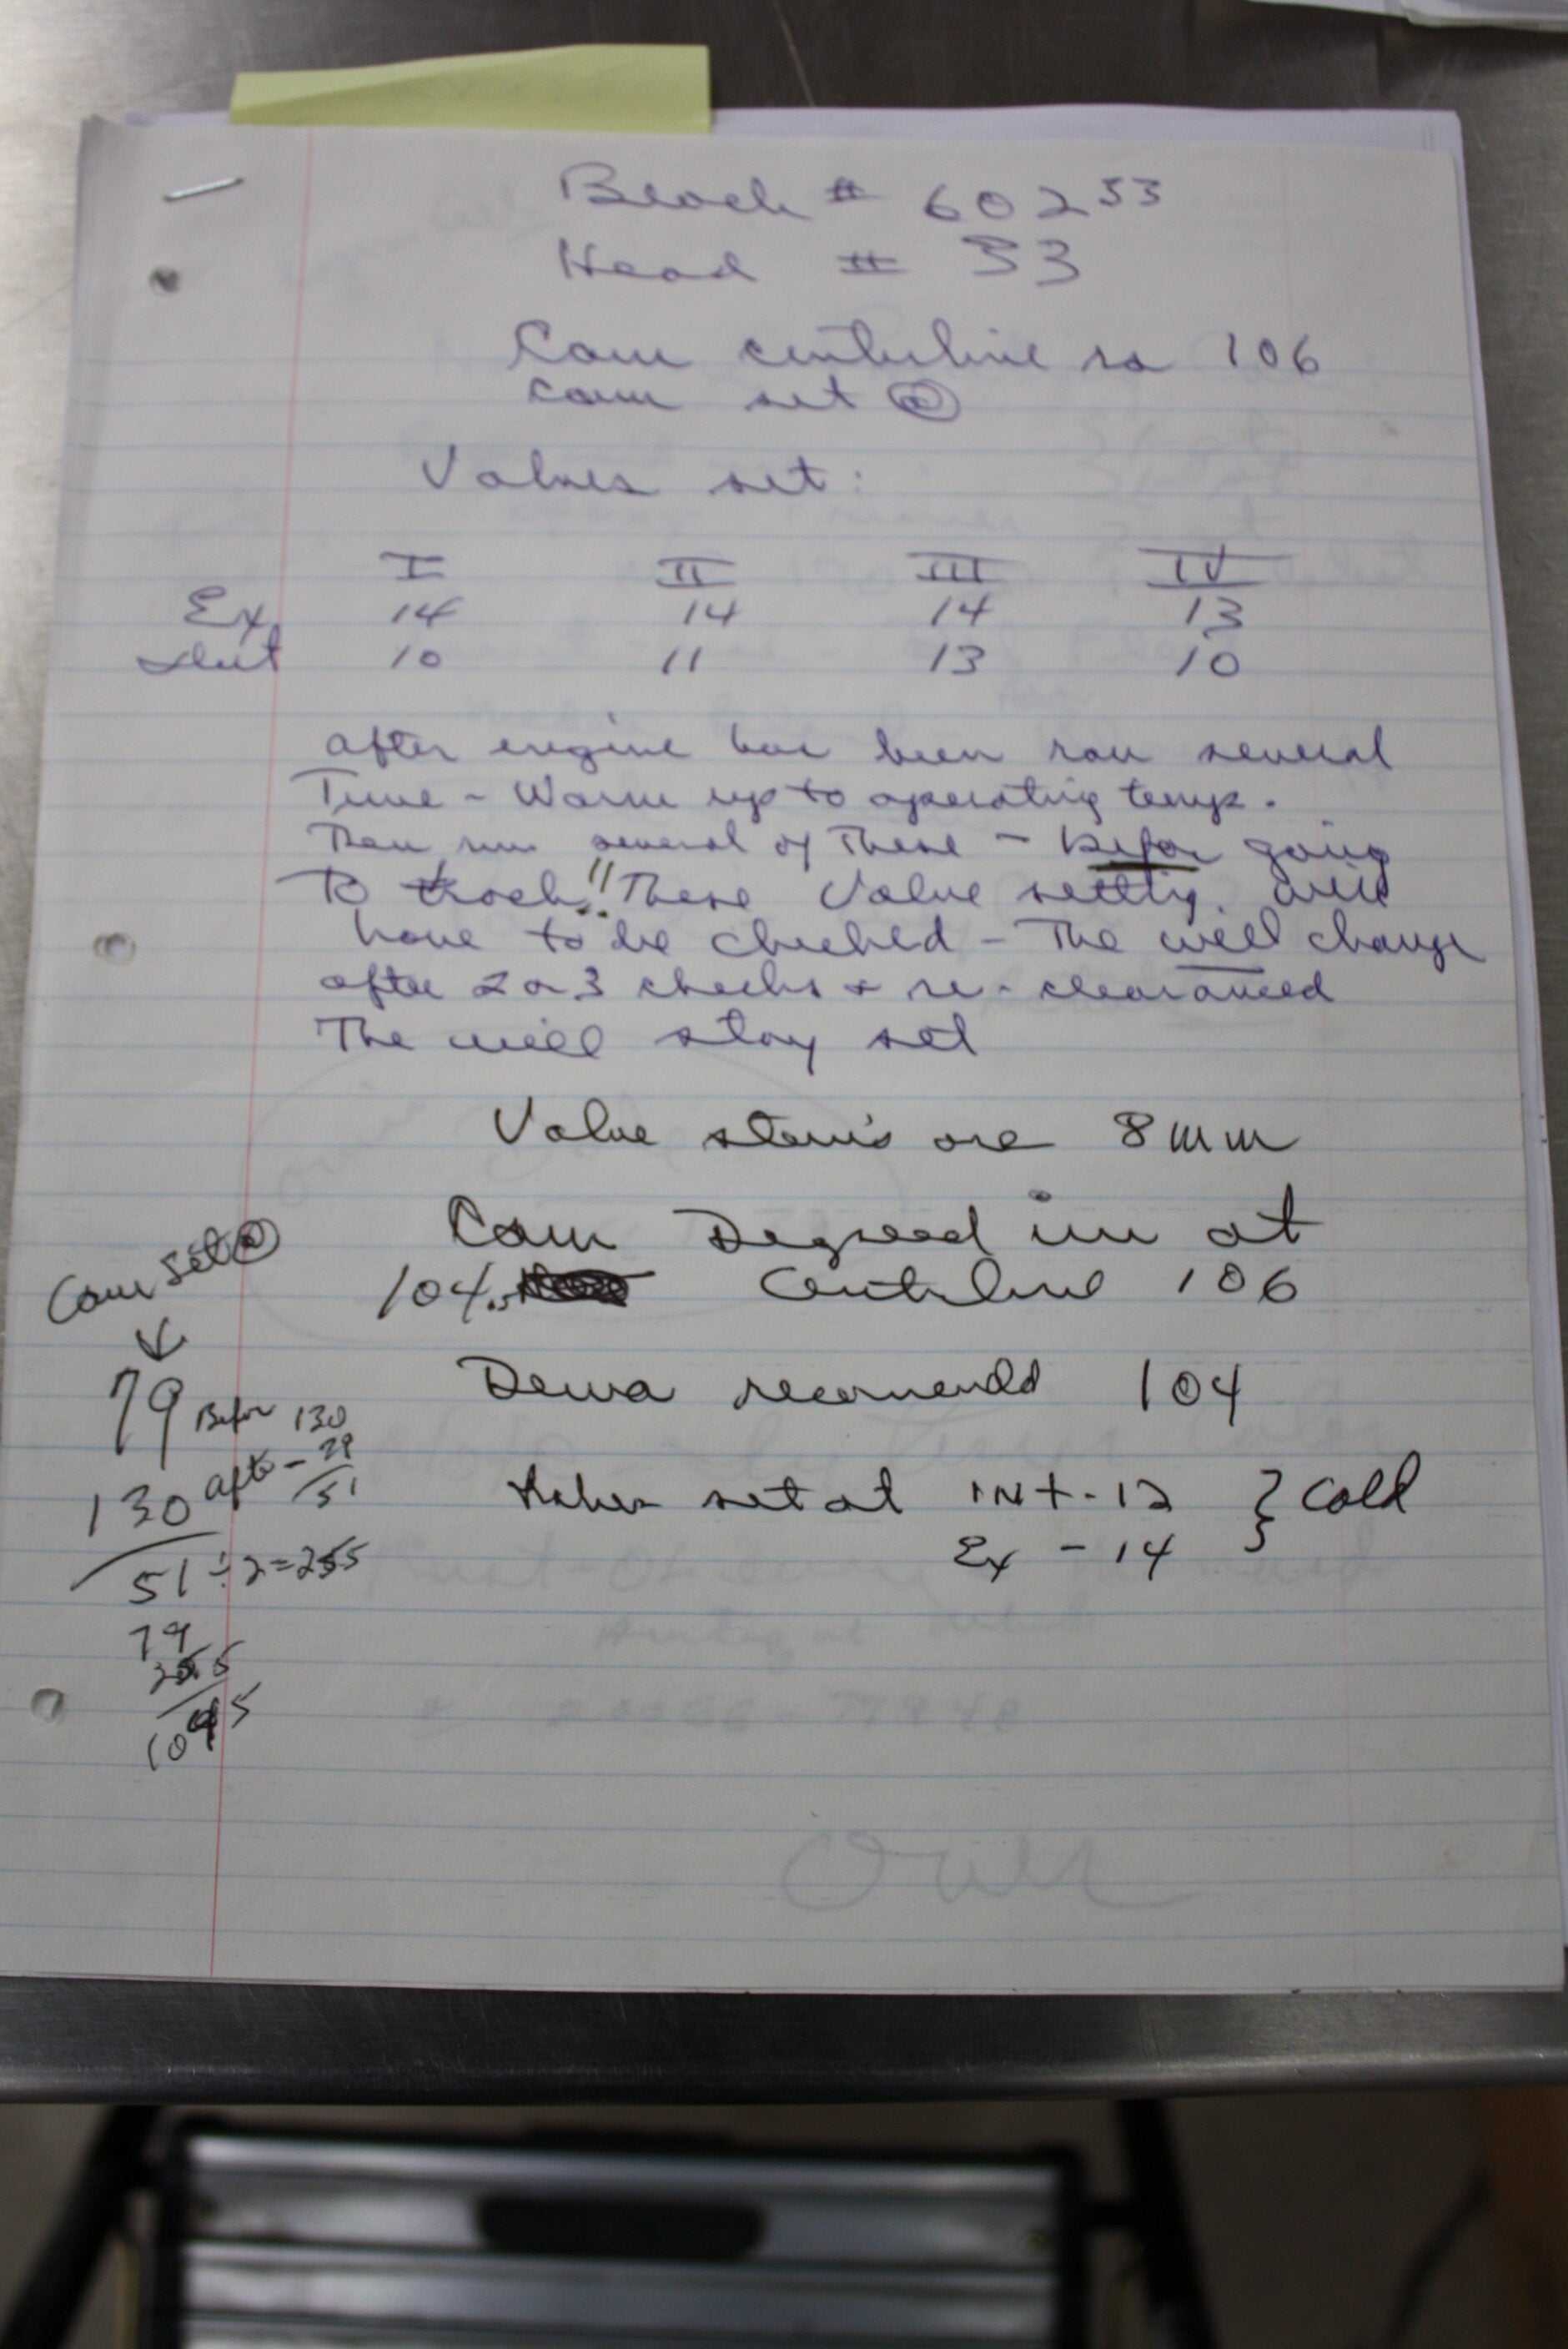 Block # 60253
Head # 53
Cam centerline is 106
cam set @
Valves set:
I II III IV
Ex. 14 14 14 13
Int 10 11 13 10
after engine has been ran several
Time - Warm up to operating temp.
Then run several of These - Befor going
To track!! These Valve setting will
have to be checked - The will change
after 2 or 3 checks & re-clearanced
The will stay set
Valve stem's are 8mm
Cam Degreed in at
104.5 Centerline 106
recomendd 104
set at INT - 12 } Cold
Ex - 14
Cam set @
↓
79 Befor 130
130 after - 79
51
51 ÷ 2 = 255
79
255
1045